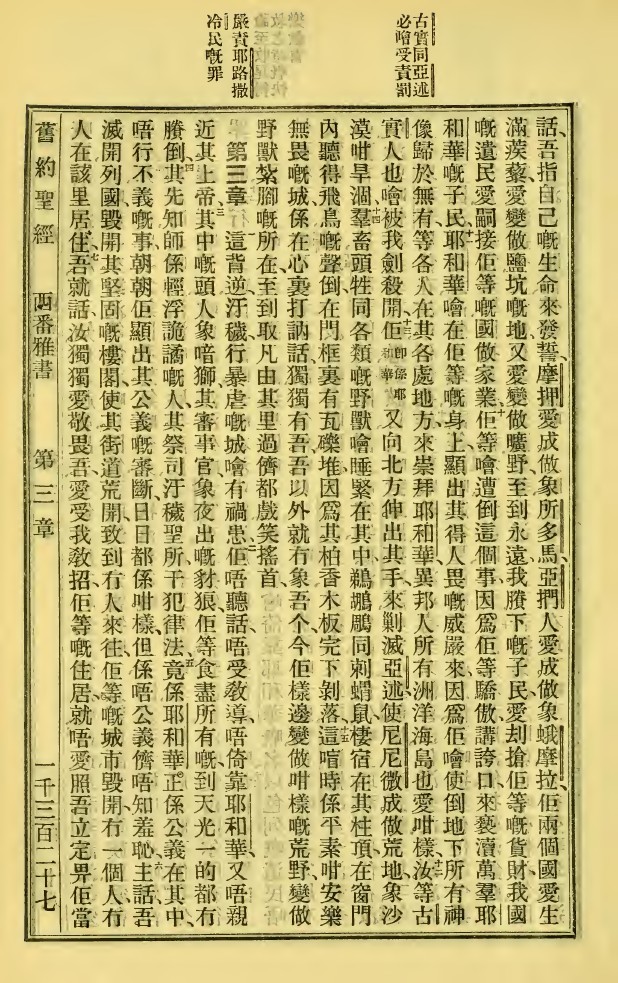 古實同亞述
必噲受責罰
嚴責耶路撒
冷民嘅罪
話、吾指自己嘅生命來發誓、摩押愛成做象所多馬、亞捫人愛成做象蛾摩拉、佢兩個國愛生
滿蒺藜、愛變做鹽坑嘅地、又愛變做曠野、至到永遠、我賸下嘅子民愛刦搶佢等嘅貨財、我國
嘅遺民愛嗣接佢等嘅國做家業、十佢等噲遭倒這個事、因爲佢等驕傲講誇口、來褻瀆萬羣耶
和華嘅子民、十一耶和華噲在佢等嘅身上、顯出其得人畏嘅威嚴來、因爲佢噲使倒地下所有神
像歸於無有、等各人在其各處地方來崇拜耶和華、異邦人所有洲洋海島也愛咁樣、十二汝等古
實人也噲被我劍殺開、十三佢卽係耶和華又向北方伸出其手來剿滅亞述、使尼尼微成做荒地、象沙
漠咁旱涸、十四羣畜頭牲同各類嘅野獸、噲睡緊在其中、鵜鶘鵰同刺蝟鼠棲宿在其柱頂、在窗門
內聽得飛鳥嘅聲、倒在門框裏有瓦礫堆、因爲其柏香木板完下剝落、十五這喑時係平素咁安樂
無畏嘅城、係在心裏打訥話、獨獨有吾、吾以外就冇象吾个、今佢樣邊變做咁樣嘅荒野、變做
野獸紮腳嘅所在、至到取凡由其里過儕都戲笑搖首、
第三章 這背逆汙穢行暴虐嘅城噲有禍患、二佢唔聽話、唔受敎導、唔倚靠耶和華、又唔親
近其上帝、三其中嘅頭人象喑獅、其審事官象夜出嘅豺狼、佢等食盡所有嘅、到天光一的都冇
賸倒、四其先知師係輕浮詭譎嘅人、其祭司汙穢聖所、干犯律法、五竟係耶和華正係公義在其中、
唔行不義嘅事、朝朝佢顯出其公義嘅審斷、日日都係咁樣、但係唔公義儕唔知羞恥、六主話、吾
滅開列國、毁開其堅固嘅樓閣、使其街道荒開、致到冇人來往、佢等嘅城市毁開冇一個人、冇
人在該里居住、七吾就話、汝獨獨愛敬畏吾、愛受我敎招、佢等嘅住居、就唔愛照吾立定畀佢當
舊約聖經 西番雅書 第三章 一千三百二十七